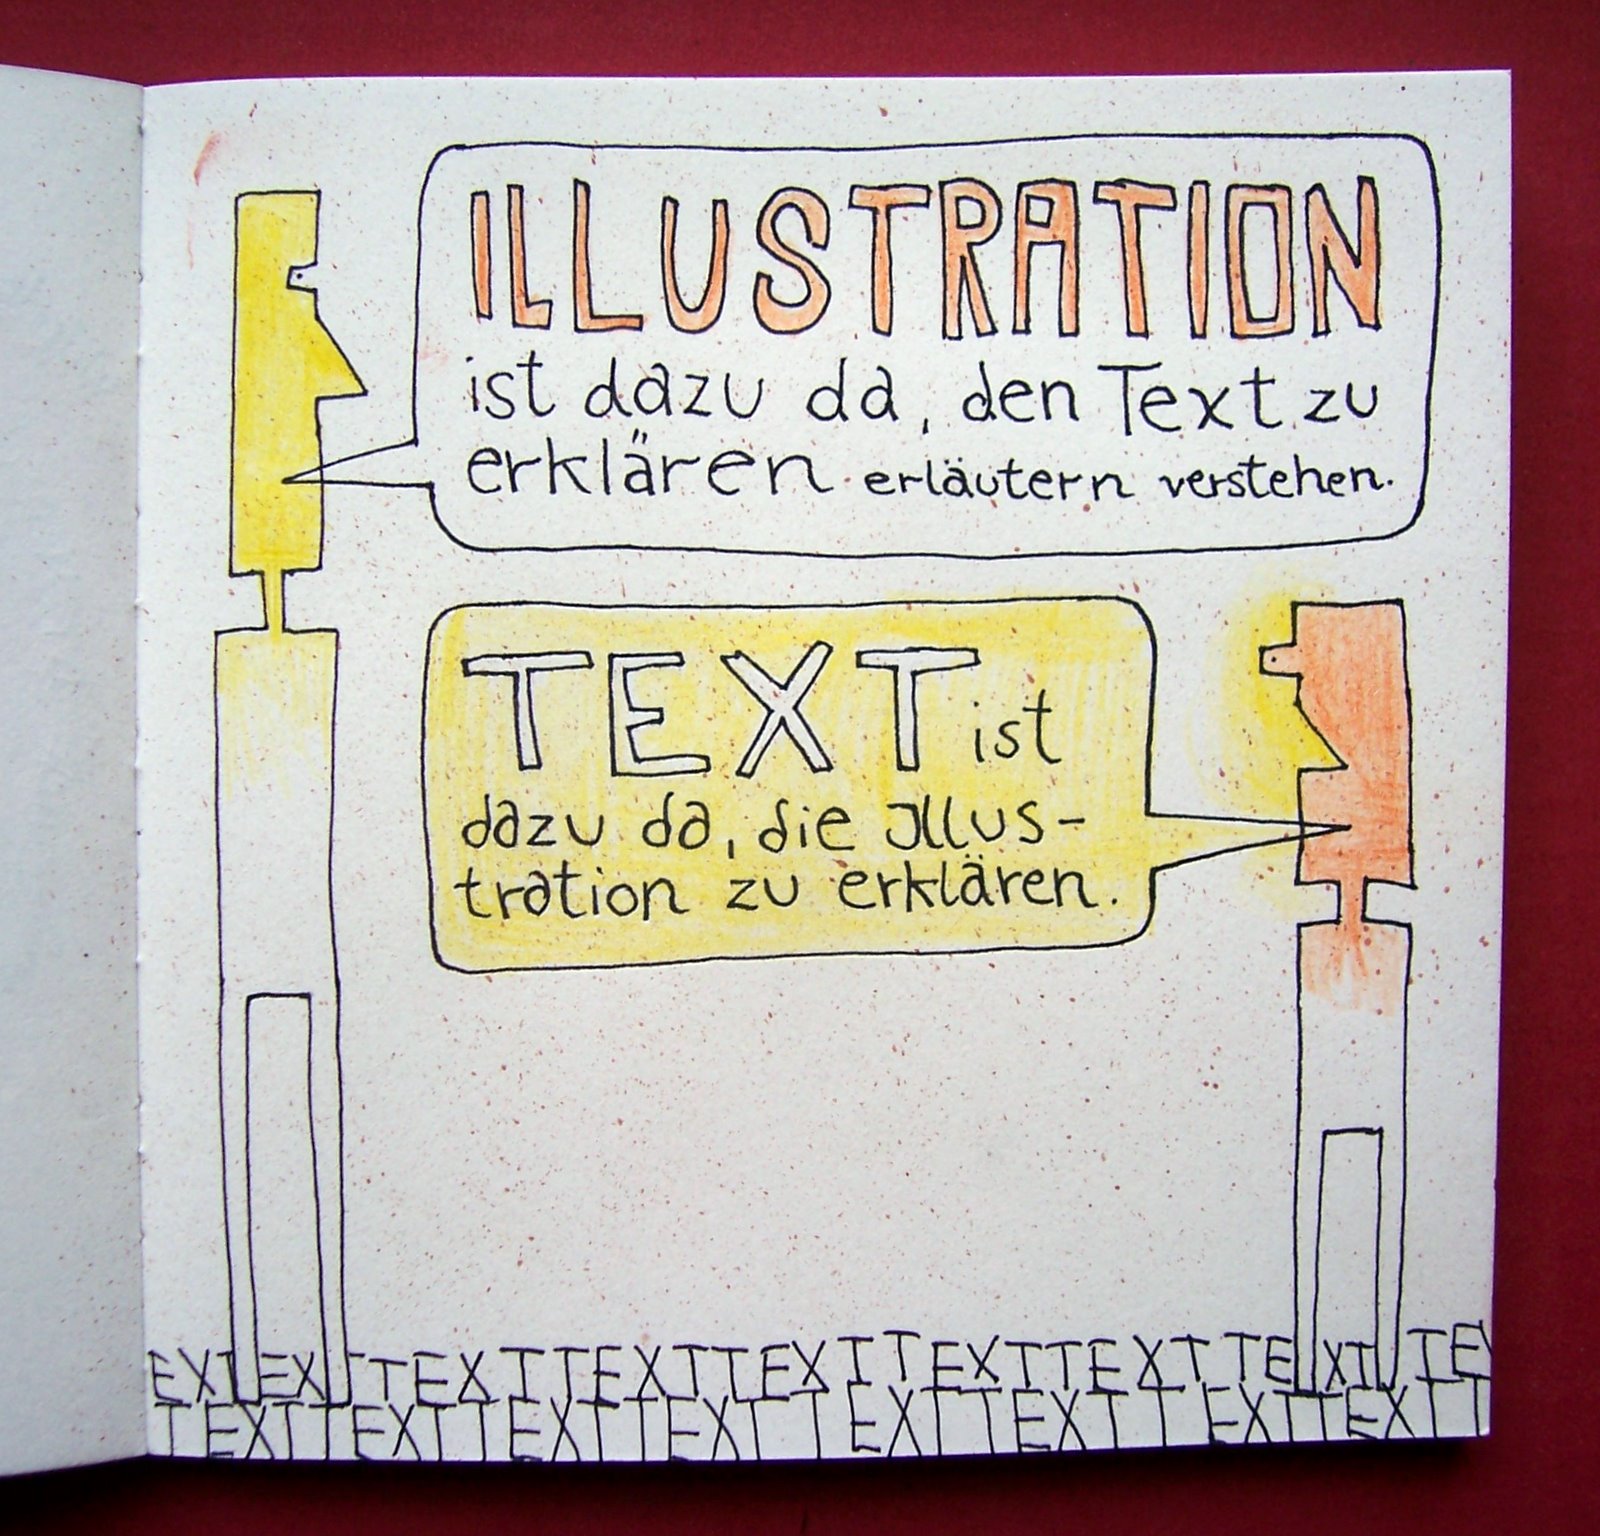 ILLUSTRATION
ist dazu da, den Text zu
erklären erläutern verstehen.
TEXT ist
dazu da, die Illus-
tration zu erklären.
EXT EX TEXT TEXT TEXT TEXT TEXT TEXT TE
TEXT TEXT TEXT TEXT TEXT TEXT TEXT TEXT T